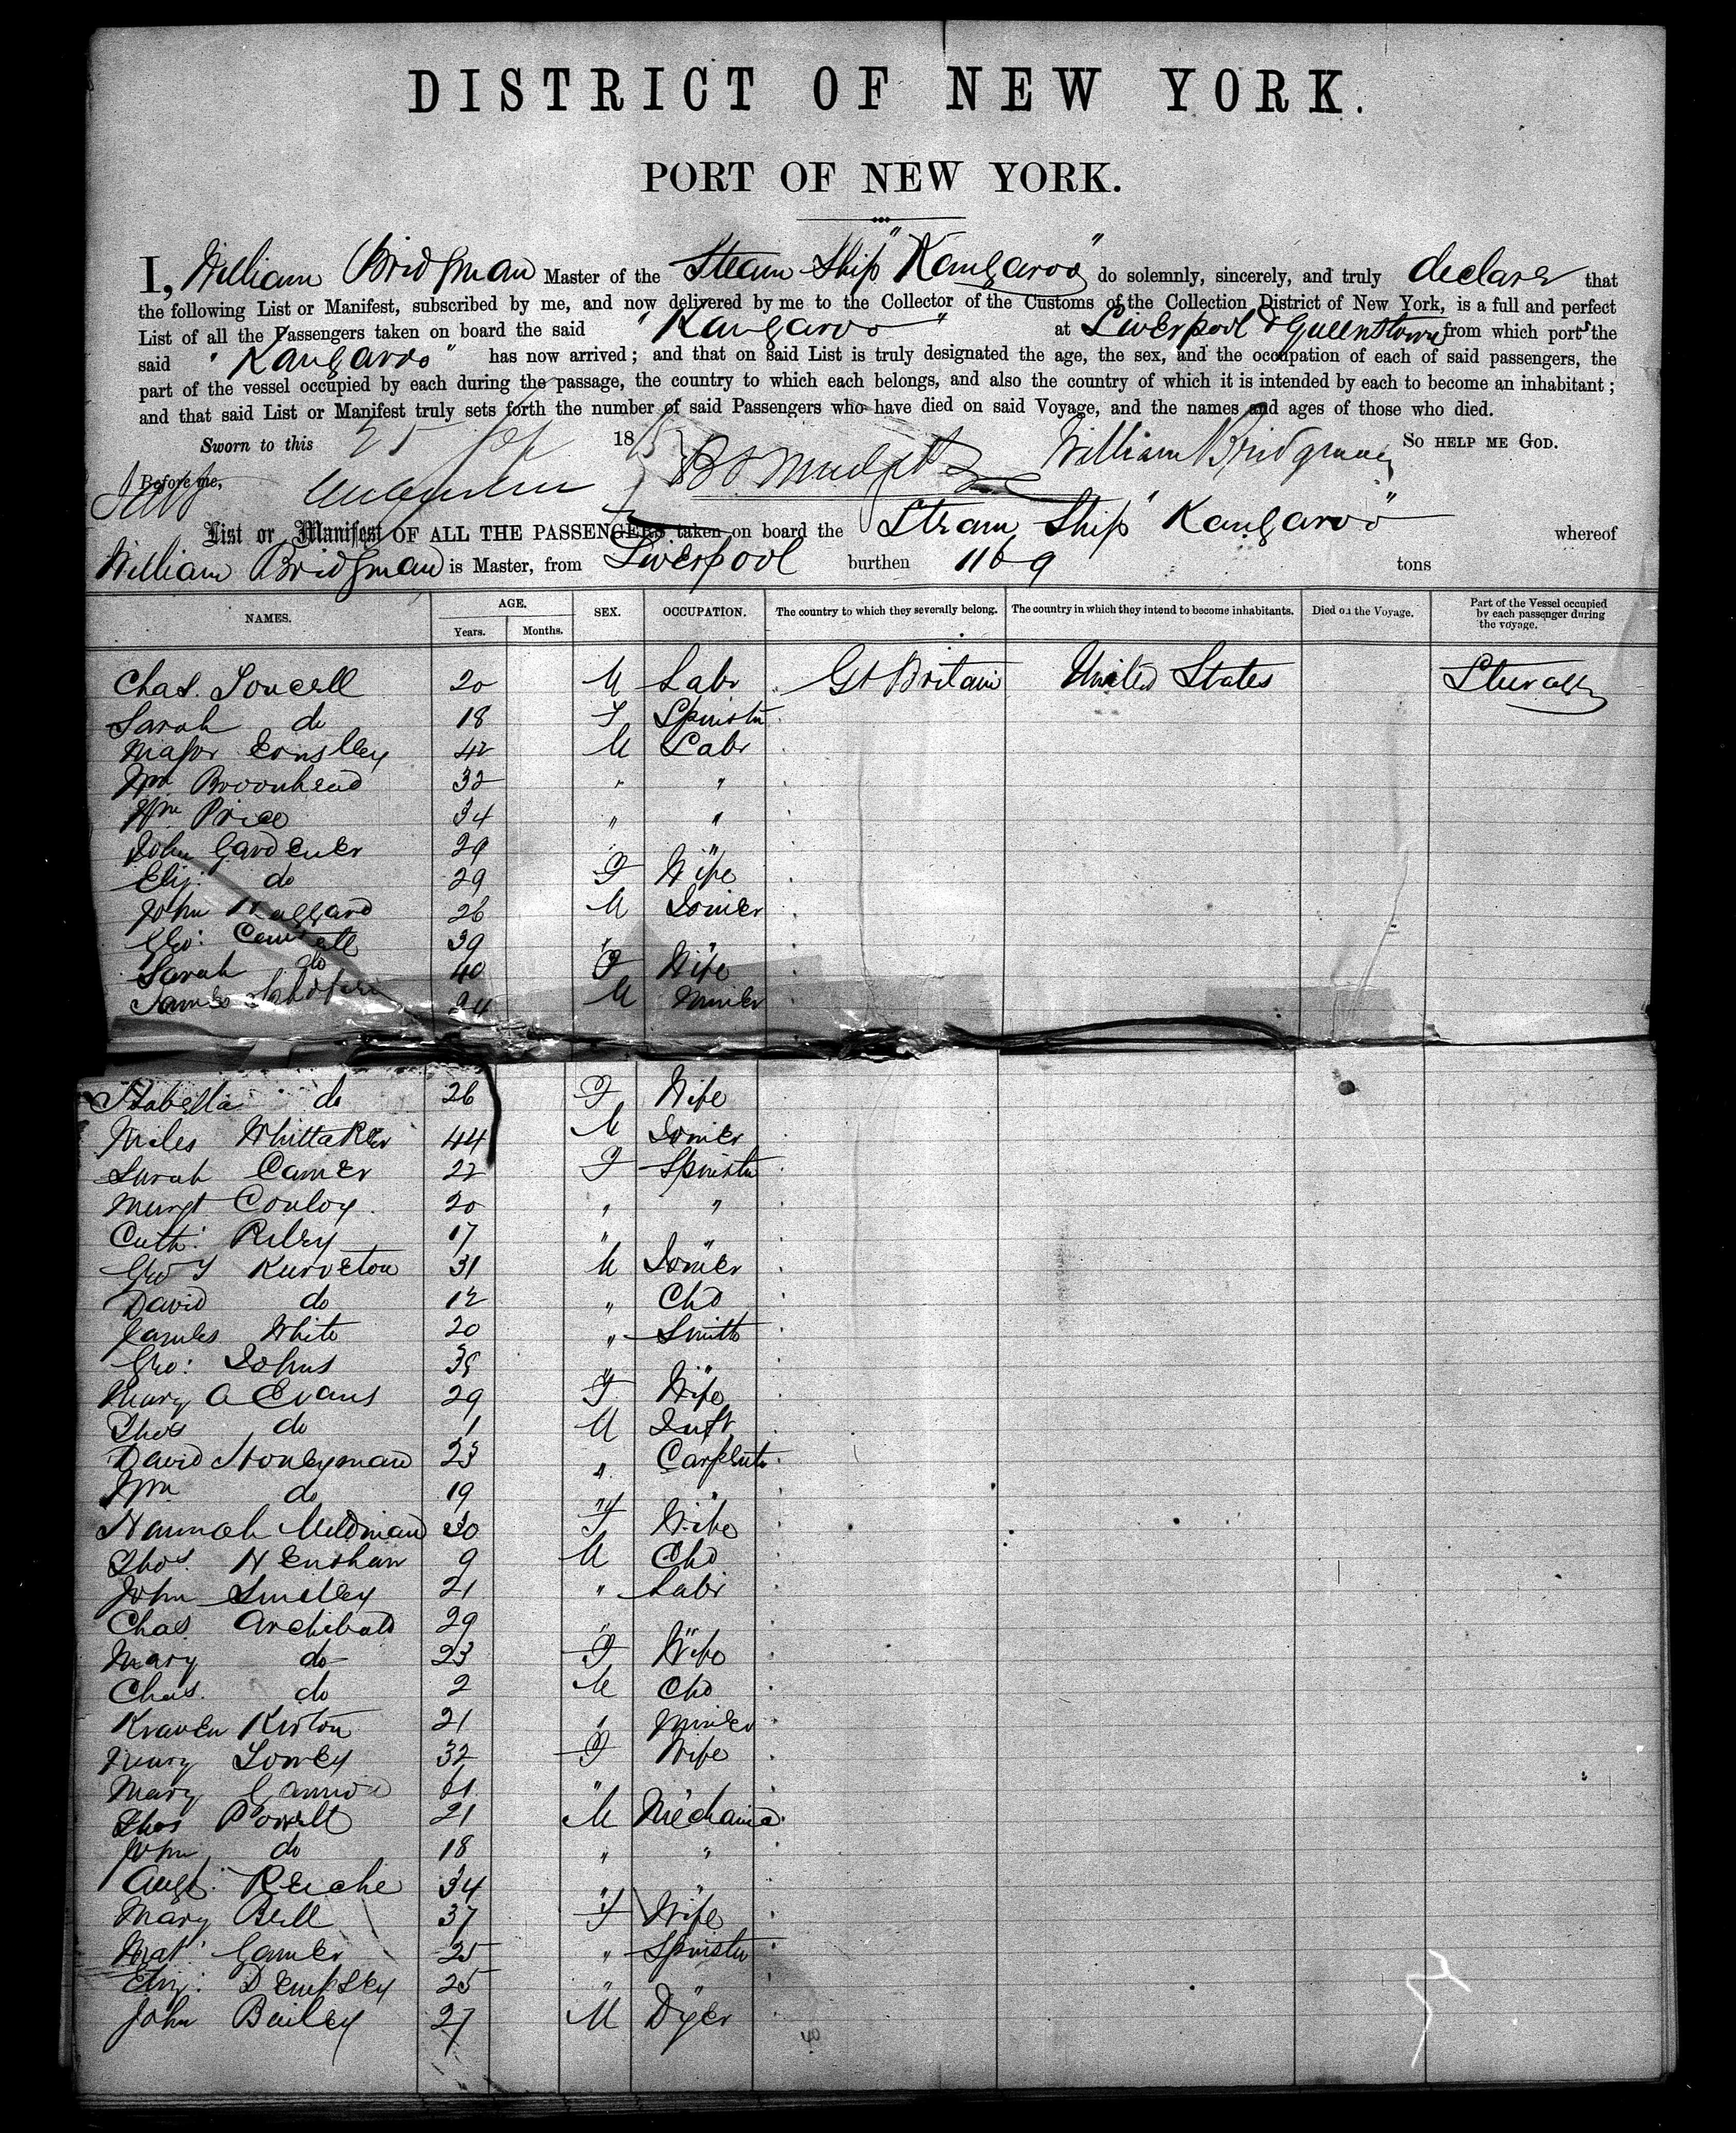 DISTRICT OF NEW YORK.
PORT OF NEW YORK.
I, William Bridgman Master of the Steam Ship "Kangaroo" do solemnly, sincerely, and truly declare that
the following List or Manifest, subscribed by me, and now delivered by me to the Collector of the Customs of the Collection District of New York, is a full and perfect
List of all the Passengers taken on board the said "Kangaroo" at Liverpool & Queenstown from which ports the
said "Kangaroo" has now arrived; and that on said List is truly designated the age, the sex, and the occupation of each of said passengers, the
part of the vessel occupied by each during the passage, the country to which each belongs, and also the country of which it is intended by each to become an inhabitant;
and that said List or Manifest truly sets forth the number of said Passengers who have died on said Voyage, and the names and ages of those who died.
Sworn to this 25 18 William Bridgman SO HELP ME GOD.
Before me,
List or Manifest OF ALL THE PASSENGERS taken on board the Steam Ship "Kangaroo" whereof
William Bridgman is Master, from Liverpool burthen 1169 tons
NAMES. AGE. SEX. OCCUPATION. The country to which they severally belong. The country in which they intend to become inhabitants. Died on the Voyage. Part of the Vessel occupied by each passenger during the voyage.
Years. Months.
Chas. 20 M Labr Gt Britain United States
Sarah do 18 F Spinstr
Major 42 M Labr
Wm Broomhead 32 " "
Wm Price 34 " "
John Gardener 29 " "
Eliz: do 29 F Wife
John Haggard 26 M Joiner
Geo: 39 " "
Sarah do 40 F Wife
James 24 M Miner
Isabella do 26 F Wife
Miles Whittaker 44 M Joiner
Sarah 22 F Spinstr
Margt Conloy 20 " "
Cath: Riley 17 " "
Geo Kurveton 31 M Joiner
David do 12 " Chd
James White 20 " Smith
Geo: Johns 38 " "
Mary A Evans 29 F Wife
Thos do 1 M Inft
David Honeyman 23 " Carpentr
Wm do 19 " "
Hannah Mildman 30 F Wife
Thos. Henshaw 9 M Chd
John Smelley 21 " Labr
Chas Archibald 29 " "
Mary do 23 F Wife
Chas. do 2 M Chd
Kraven Kirton 21 " Miner
32 F Wife
Mary "
Thos Powell 21 M Mechanic
John do 18 " "
Augt: Reiche 34 " "
Mary Bell 37 F Wife
Mat: 25 " Spinstr
Eliz: Dempsey 25 " "
John Bailey 27 M Dyer